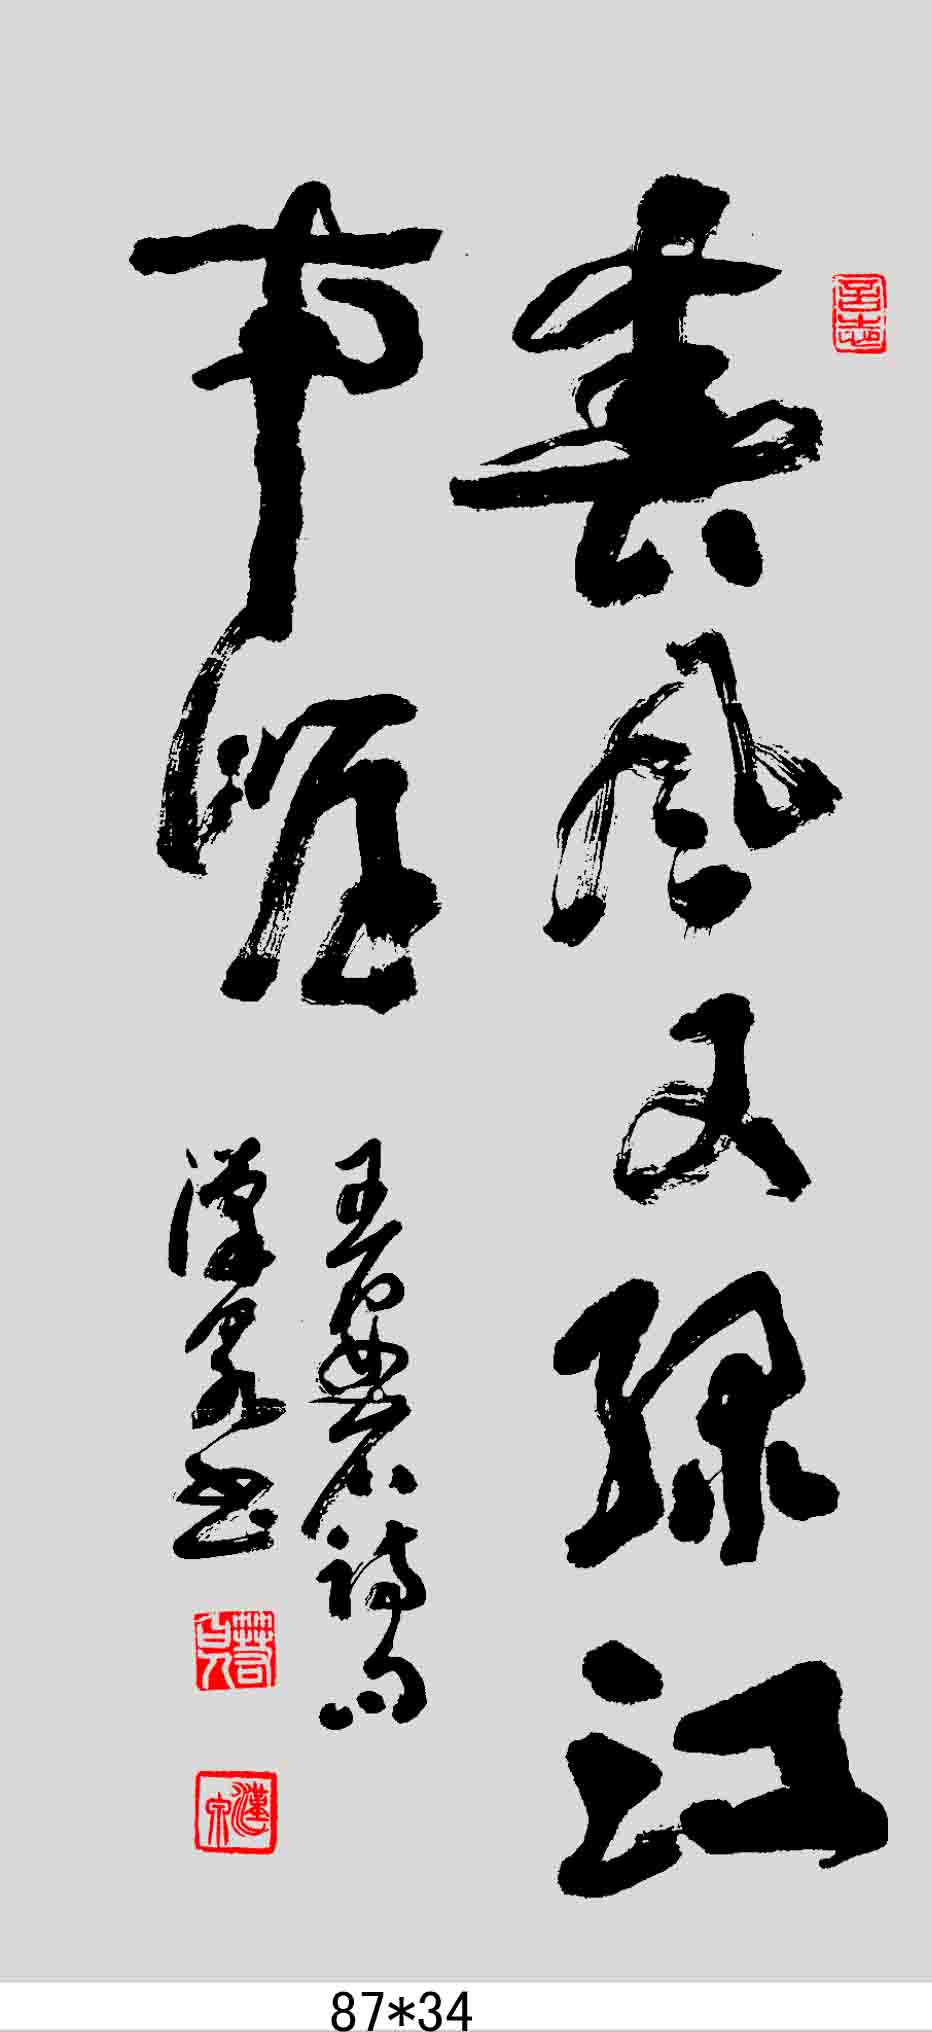 春风又绿江
南岸
王安石诗句
汉泉书
87*34